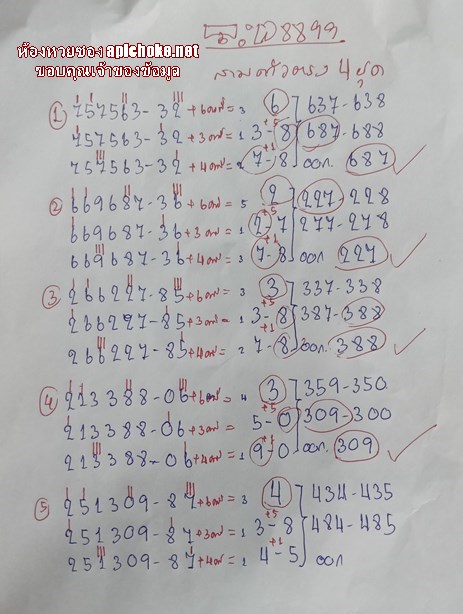 ห้องหวยของ apichoke.net
ขอบคุณเจ้าของข้อมูล
8899
สามตัวตรง 4 ชุด
① 757563-32 +6ตท = 3 6 637-638
757563-32 +3ตท = 1 3-8 687-688
757563-32 +4ตท = 7-8 ออก. 687
② 669687-36 +6ตท = 5 2 227-228
669687-36 +3ตท = 1 2-7 277-278
669687-36 +4ตท = 3 7-8 ออก 227
③ 266227-85 +6ตท = 3 3 337-338
266227-85 +3ตท = 1 3-8 387-388
266227-85 +4ตท = 2 7-8 ออก. 388
④ 213388-06 +6ตท = 4 3 359-350
213388-06 +3ตท = 5-0 309-300
213388-06 +4ตท = 1 9-0 ออก. 309
⑤ 251309-87 +6ตท = 3 4 434-435
251309-87 +3ตท = 1 3-8 484-485
251309-87 +4ตท = 1 4-5 ออก